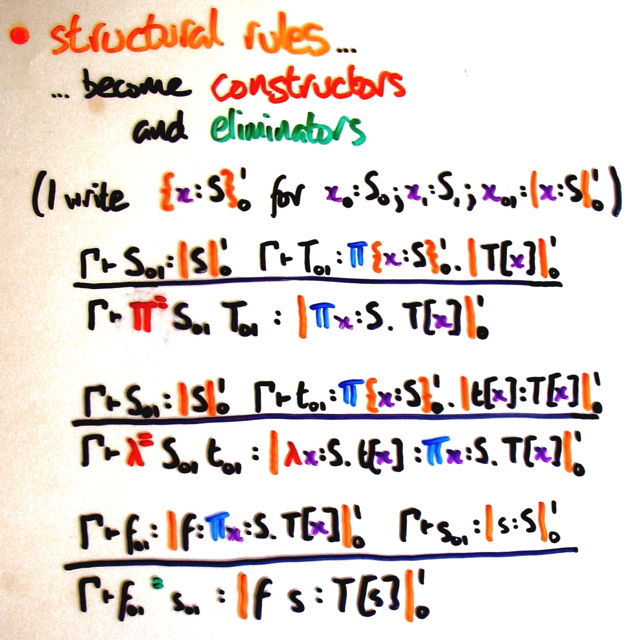 • structural rules...
... become constructors
and eliminators
(I write {x:S}₀¹ for x₀:S₀; x₁:S₁; x₀₁:|x:S|₀¹)
Γ⊢S₀₁:|S|₀¹ Γ⊢T₀₁:Π{x:S}₀¹.|T[x]|₀¹
Γ⊢Π⁼ S₀₁ T₀₁ : |Πx:S. T[x]|₀¹
Γ⊢S₀₁:|S|₀¹ Γ⊢t₀₁:Π{x:S}₀¹.|t[x]:T[x]|₀¹
Γ⊢λ⁼ S₀₁ t₀₁ : |λx:S. t[x] : Πx:S. T[x]|₀¹
Γ⊢f₀₁:|f:Πx:S. T[x]|₀¹ Γ⊢s₀₁:|s:S|₀¹
Γ⊢f₀₁ ⁼ s₀₁ : |f s : T[s]|₀¹